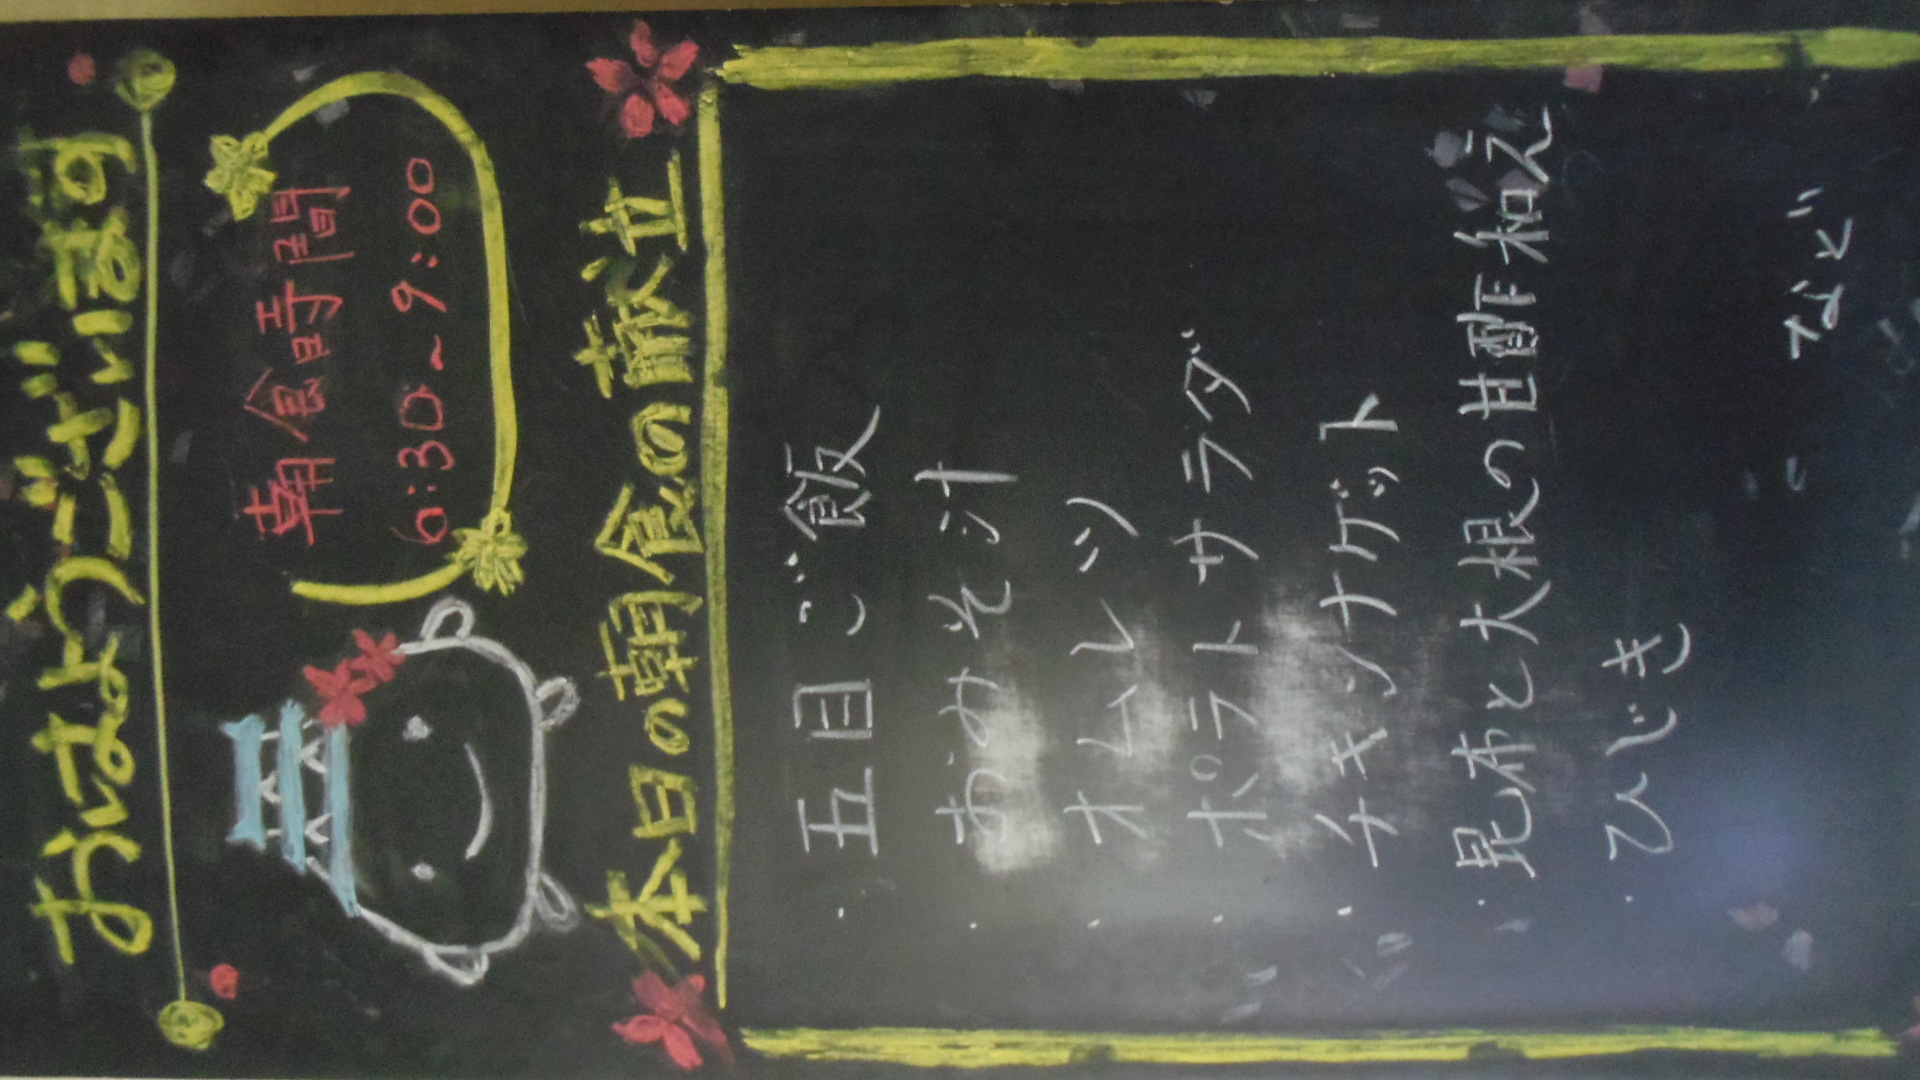 おはようございます
朝食時間
6:30~9:00
本日の朝食の献立
・五目ご飯
・おみそ汁
・オムレツ
・ポテトサラダ
・チキンナゲット
・昆布と大根の甘酢和え
・ひじき
など